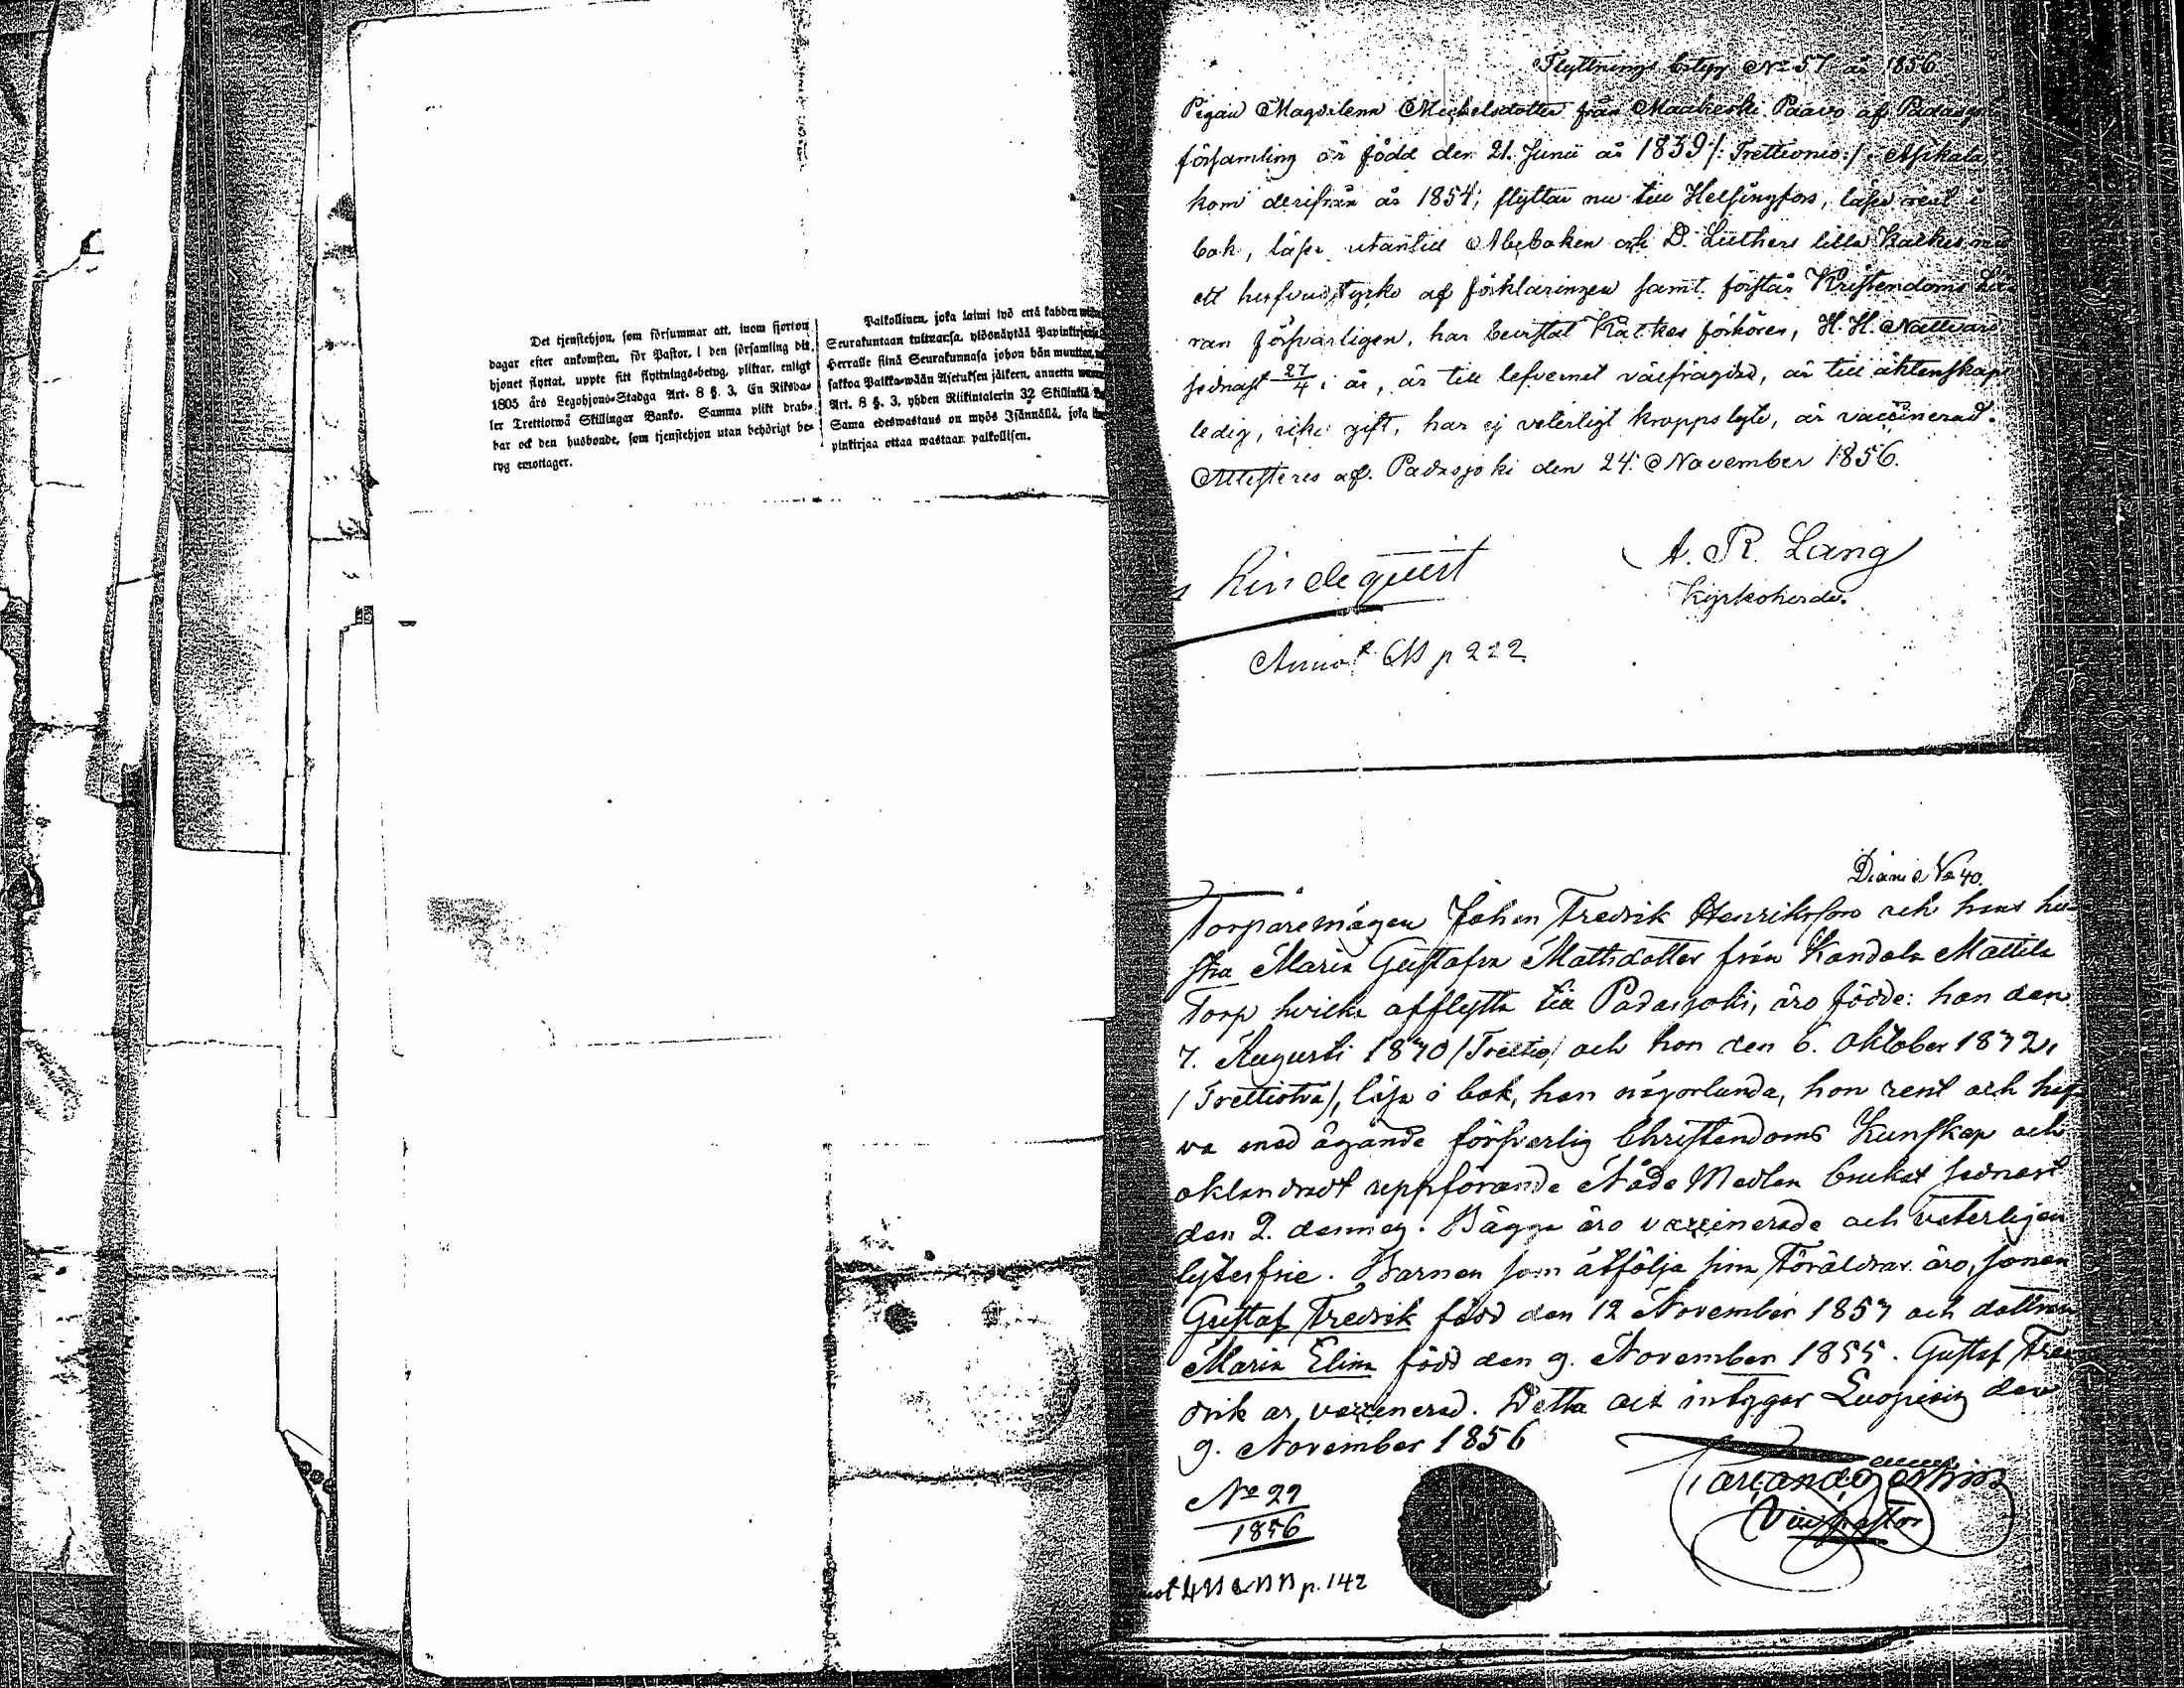 Det tjenstehjon, som försummar att, inom fjorton
dagar efter ankomsten, för Pastor, i den församling dit
hjonet flyttat, uppte sitt flyttnings-betyg, pliktar, enligt
1805 års Legohjons-Stadga Art. 8 §. 3, En Riksda-
ler Trettiotwå Skillingar Banko. Samma plikt drab-
bar ock den husbonde, som tjenstehjon utan behörigt be-
tyg emottager.
Palkollinen, joka laimi lyö että kahden
Seurakuntaan tultuansa, ylösnäytää Papinkirjansa
Herralle siinä Seurakunnasa johon hän muuttanut
sakkoa Palkka-wään Asetuksen jälkeen, annettu
Art. 8 §. 3, yhden Riikintalerin 32 Skillinkiä
Sama edeswastaus on myös Isännällä, joka
pinkirjaa ottaa wastaan palkollisen.
Flyttnings betyg No 57 år 1856
Pigan Magdalena Michelsdotter från Maakeski Paavo af Padasjoki
församling är född den 21. Junii år 1839 /: Trettionio :/ i Asikkala
kom derifrån år 1854, flyttar nu till Helsingfors, läser rent i
bok, läser utantill Abcboken och D. Luthers lilla Katkes med
ett hufvudstycke af förklaringen samt förstår Kristendoms Lä-
ran försvarligen, har bevistat Katkes förhören, H. H. Nattvard
sednast 27/4 i år, är till lefvernet välfrägdad, är till äktenskap
ledig, icke gift, har ej veterligt kroppslyte, är vaccinerad.
Attesteres af. Padasjoki den 24. November 1856.
Lindequist
A. R. Lang
Kyrkoherde.
Annot. p 222.
Diarié No 40.
Torparemågen Johan Fredrik Henriksson och hans hu-
stru Maria Gustafva Mattsdotter från Kandola Mattila
Torp hvilka afflytta till Padasjoki, äro födde: han den
7. Augusti 1830 /Trettio/ och hon den 6. Oktober 1832,
/Trettiotvå/, läsa i bok, han någorlunda, hon rent och haf-
va med ägande försvarlig Christendoms Kunskap och
oklandradt uppförande Nåde Medlen brukat sednast
den 2. dennes. Bägge äro vaccinerade och veterligen
lytesfrie. Barnen som åtfölja sina Föräldrar äro, sonen
Gustaf Fredrik född den 12 November 1853 och dottren
Maria Elina född den 9. November 1855. Gustaf Fred-
rik är vaccinerad. Detta allt intygar Luopiois den
9. November 1856
No 29
1856
Vice pastor
p. 142